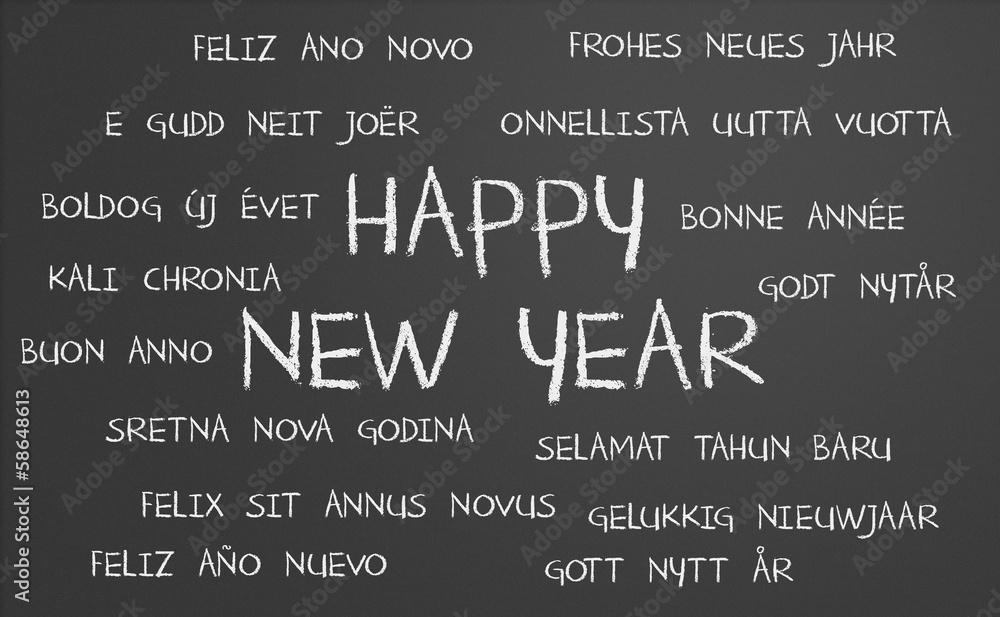 FELIZ ANO NOVO
FROHES NEUES JAHR
E GUDD NEIT JOËR
ONNELLISTA UUTTA VUOTTA
HAPPY
BOLDOG ÚJ ÉVET
BONNE ANNÉE
KALI CHRONIA
GODT NYTÅR
NEW YEAR
BUON ANNO
SRETNA NOVA GODINA
SELAMAT TAHUN BARU
FELIX SIT ANNUS NOVUS
GELUKKIG NIEUWJAAR
FELIZ AÑO NUEVO
GOTT NYTT ÅR
Adobe Stock | #58648613